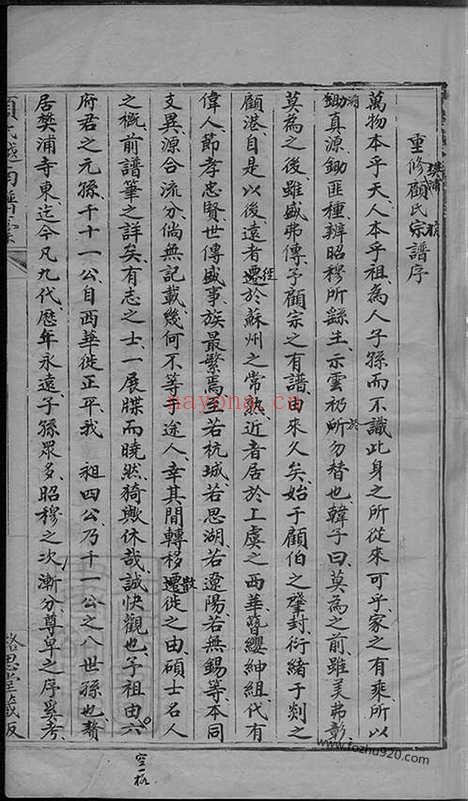 重修樊浦顧氏宗譜序
萬物本乎天人本乎祖為人子孫而不識此身之所從來可乎家之有乘所以
鋤真源鋤匪種辨昭穆所繇生示雲礽所勿替也韓子曰莫為之前雖美弗彰
莫為之後雖盛弗傳予顧宗之有譜由來久矣始于顧伯之肇封衍緒于剡之
顧港自是以後遠者遷於蘇州之常熟近者居於上虞之西華簪纓紳組代有
偉人節孝忠賢世傳盛事族最繁焉至若杭城若思湖若遼陽若無錫等本同
支異源合流分倘無記載幾何不等于途人幸其間轉移遷徙之由碩士名人
之概前譜筆之詳矣有志之士一展牒而曉然猗歟休哉誠快觀也予祖由六
府君之元孫千十一公自西華徙正平我 祖四公乃千十一公之八世孫也贅
居樊浦寺東迄今凡九代歷年永遠子孫眾多昭穆之次漸分尊卑之序奚考
空一格
顧氏越南譜
藏板
nayona.cn
www.fozhu920.com